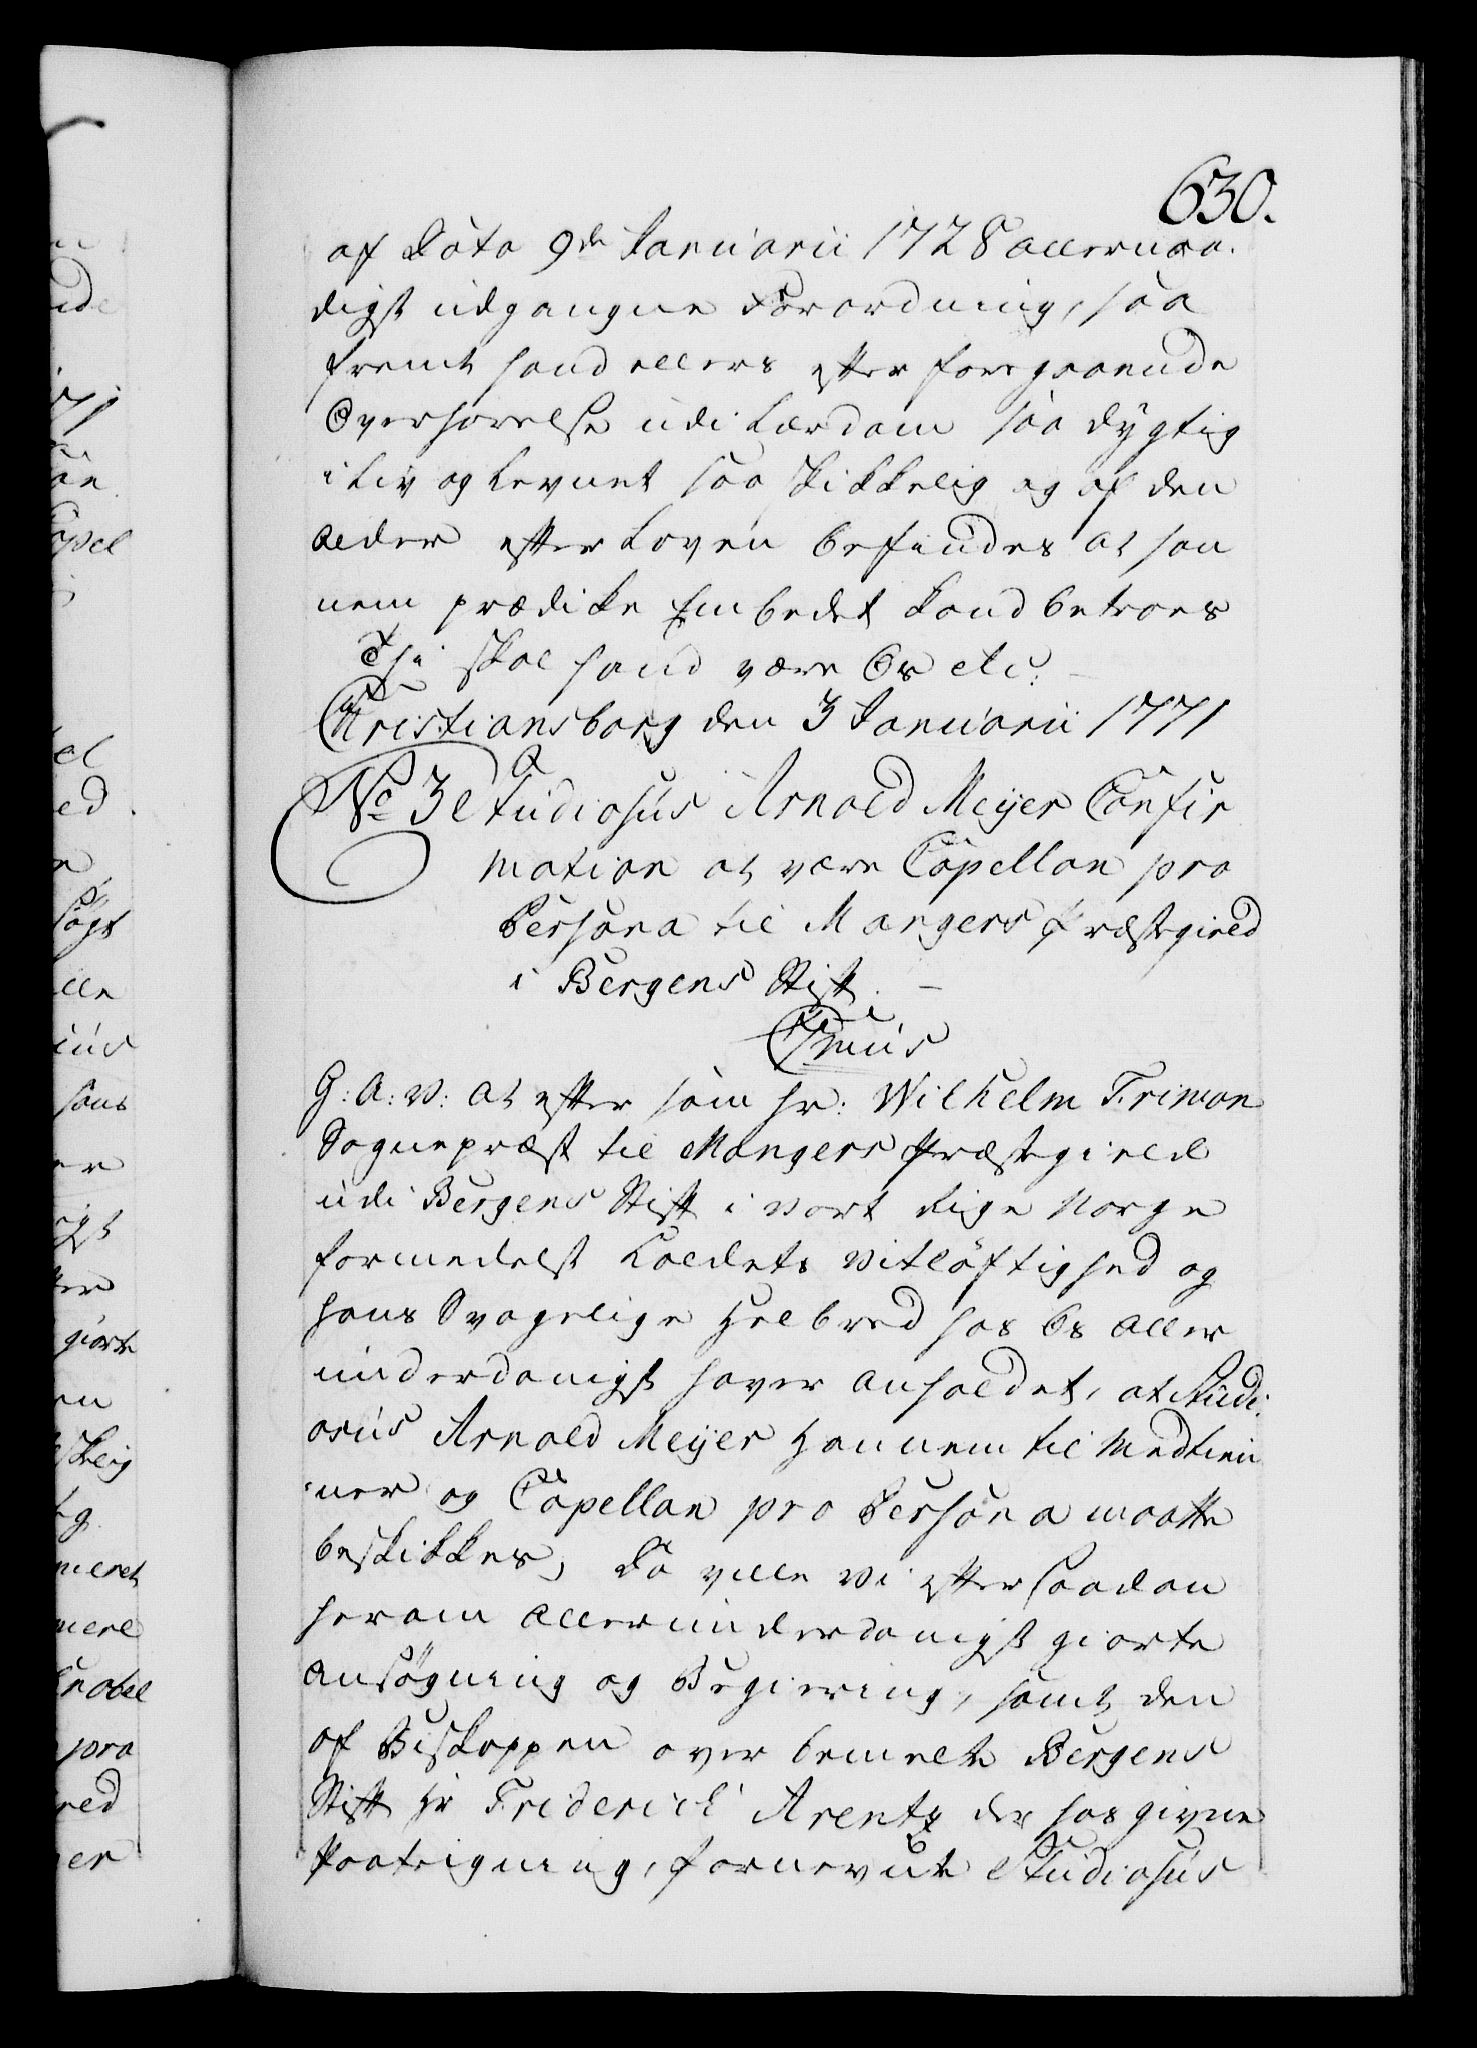 630.
af Dato 9de Januarii 1728 allernaa-
digst udgangne Forordning, saa
fremt hand ellers efter foregaaende
Overhørelse udi Lærdom saa dygtig
i Liv og Levnet saa skikkelig og af den
alder efter Loven befindes at han
nem prædike Embedet kand betroes
Thi skal hand være Os etc:
Christiansborg den 3 Januarii 1771
No 3 Studiosus Arnold Meijer Confir
mation at være Capellan pro
Persona til Mangers Præstegield
i Bergens Stift. –
Chr: VIIus
G: A: V: at efter som hr: Wilhelm Friman
Sognepræst til Mangers Præstegield
udi Bergens Stift i vort Rige Norge
formedelst Kaldets Vitløftighed og
hans Svagelige Helbred hos Os aller
underdanigst haver anholdet, at Studi-
osus Arnold Meijer Hannem til Medtien
ner og Capellan pro Persona maatte
beskikkes, Da ville Vi efter saadan
herom allerunderdanigst giorte
ansøgning og Begiering, samt den
af Biskoppen over bemelte Bergens
Stift Hr Friderich Arentz der hos givne
Paategning, fornevnte Studiosus